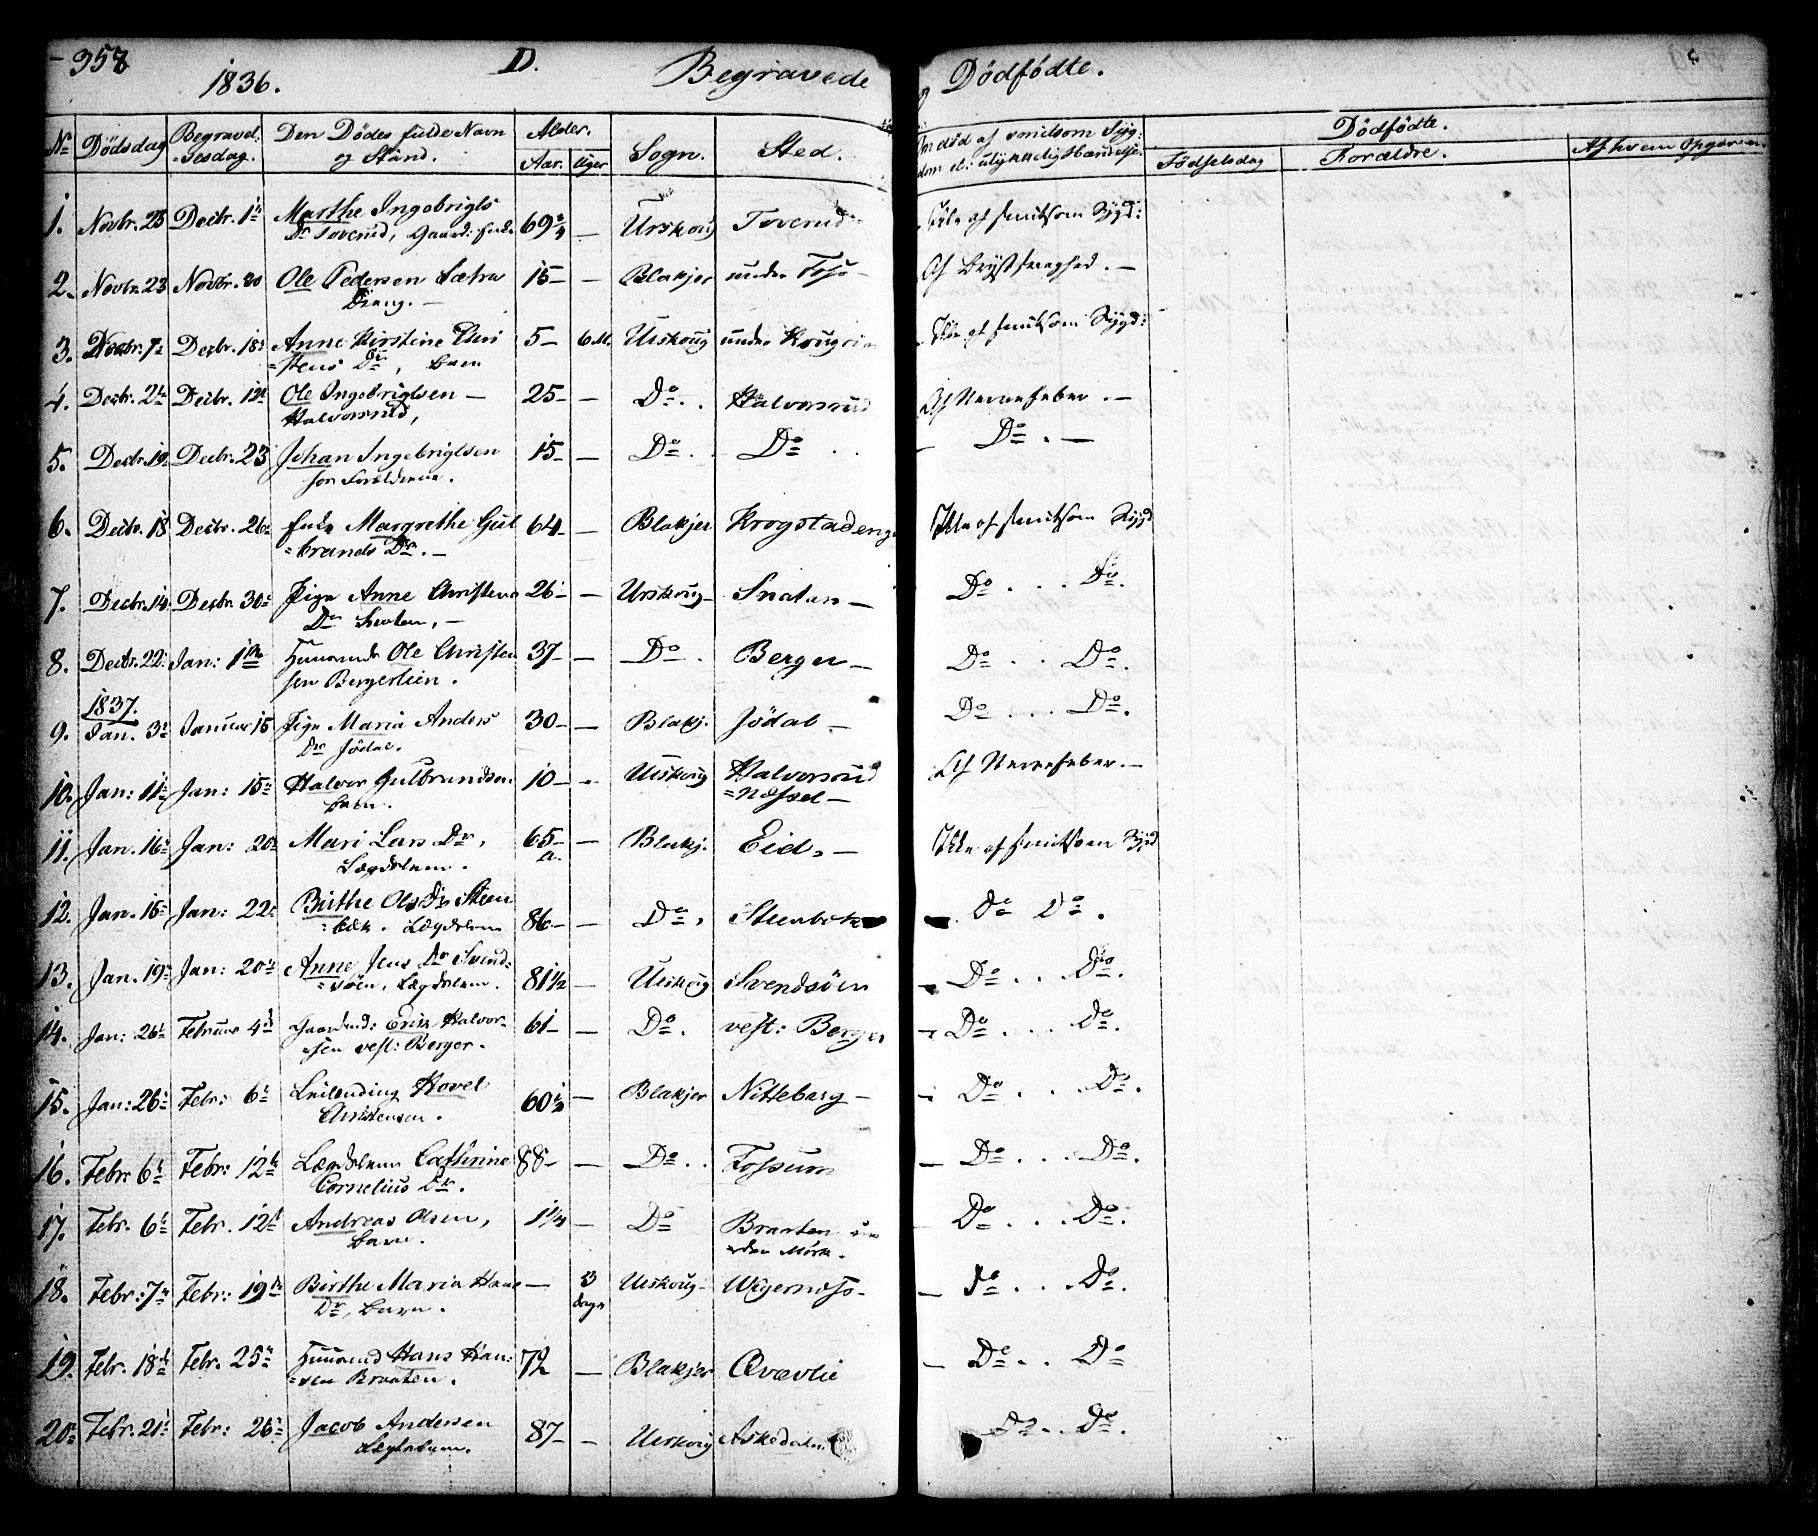 358
1836.
D.
Begravede og Dödfödte.
No Dödsdag Begravelsesdag. Den Dödes fulde Navn og Stand. Alder. Aar. Uger Sogn. Sted. Om död af smidsom Syg: dom el: ulykkelig Hændelse. Dödfödte. Födselsdag Forældre. Af hvem Opgiven.
1. Novbr. 25 Decbr. 1ste Marthe Ingebrigts Dr Toverud, Gaard: Enke 69 3/4 — Urskoug Toverud Ikke af smitsom Sygd:
2. Novbr. 23 Novbr. 30 Ole Pedersen Sætra Dreng. — 15 — Blakjer under Foss — Af Brystsvaghed. —
3. Decbr. 7de Decbr. 18de Anne Kirstine Christens Dr, Barn 5 — 6 M. Urskoug under Krogrim Ikke af smitsom Sygd:
4. Decbr. 2de Decbr. 12te Ole Ingebrigtsen — Halvorsrud, 25 — — Do . . Halvorsrud Af Nervefeber. —
5. Decbr. 19 Decbr. 23 Johan Ingebrigtsen hos Forældrene. 15 — — Do . . Do . . — Do . —
6. Decbr. 18 Decbr. 26de Enke Margrethe Gulbrands Dr. — 64 — — Blakjer Krogstadenge Ikke af smitsom Sygd
7. Decbr. 14 Decbr. 30te Pige Anne Christens Dr Snoten, — 26 — — Urskoug — Snatan — Do . . . Do.
8. Decbr. 22 Jan: 1ste Huusmd Ole Christensen Bergerlien. 37 — — Do . Berger — Do . . Do.
1837.
9. Jan. 3de Januar 15 Pige Maria Anders Dr Jödal. 30 — — Blakj. Jödal — Do . . . Do.
10. Jan: 11te Jan: 15de Halvor Gulbrandsen Barn. 10 — — Urskoug Halvorsrud =Næssel — Af Nervefeber. —
11. Jan. 16de Jan: 20de Mari Lars Dr, Lægdslem. 65 — a. — Blakj. Eid, — Ikke af smitsom Sygd
12. Jan. 15de Jan: 22de Birthe Ols Dr Steenbæk. Lægdslem 86 — — Do, Steenbæk Do Do.
13. Jan. 19de Jan: 20de Anne Jens Dr Svendsöen, Lægdslem. 81 1/2 — Urskoug Svendsöen Do . . Do.
14. Jan: 26de Februar 4de Gaardmd: Erik Halvorsen vest: Berger. 61 — — Do. vest: Berger Do . . . Do.
15. Jan: 26de Febr: 6te Leilending Hovel Christensen. 60 1/2 — Blakjer Nitteberg — Do . . . Do.
16. Febr: 6te Febr: 12te Lægdslem Cathrine Cornelius Dr. 88 — — Do . . Fossum — Do . . . Do.
17. Febr. 6te Febr. 12te Andreas Olsen, Barn. 1 1/4 — Do Braaten under Mörk. Do . . . Do.
18. Febr: 7de Febr: 19de Birthe Maria Hans Dr, Barn. — 3 dage Urskoug — — Do . . . Do.
19. Febr. 18de Febr. 25de Huusmd Hans Hansen Braaten. 72 — Blakjer Qvævlie — Do . . Do
20. Febr. 21de Febr: 26de Jacob Andersen Lægdslem. 87 — — Urskoug Askedalen Do . . Do.